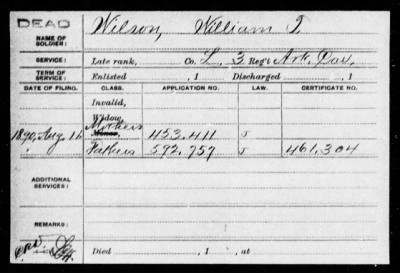 DEAD
NAME OF SOLDIER: Wilson, William T.
SERVICE: Late rank, Co. L, 3 Reg't Ark. Cav.
TERM OF SERVICE: Enlisted , 1 Discharged , 1
DATE OF FILING. CLASS. APPLICATION NO. LAW. CERTIFICATE NO.
Invalid,
Widow,
1890, Aug. 16 Mother's Minor, 453.411 J
" Father's 592.757 J 461,304
ADDITIONAL SERVICES:
REMARKS:
Died , 1 , at